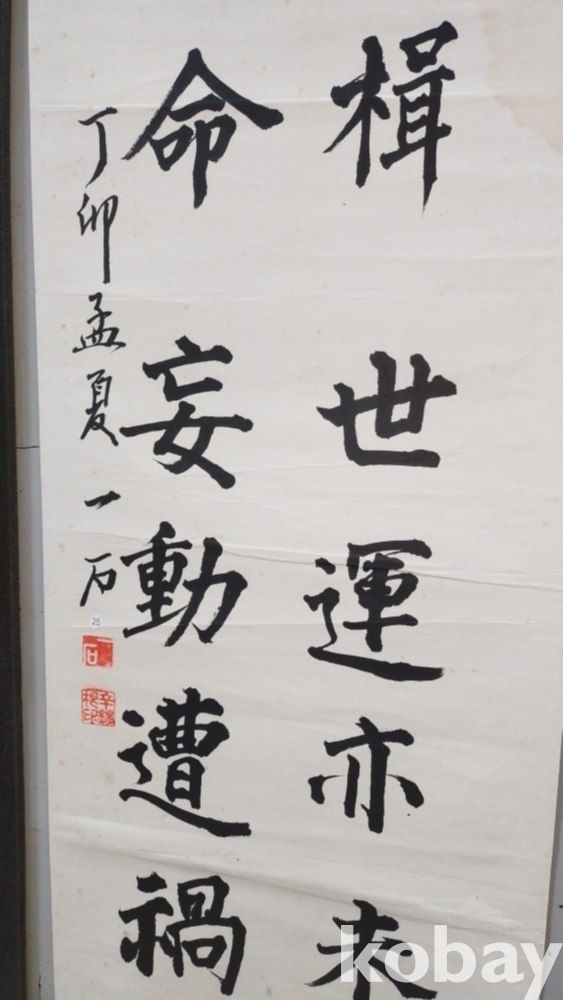 楫世運亦未
命妄動遭禍
丁卯孟夏一石
25
kobay